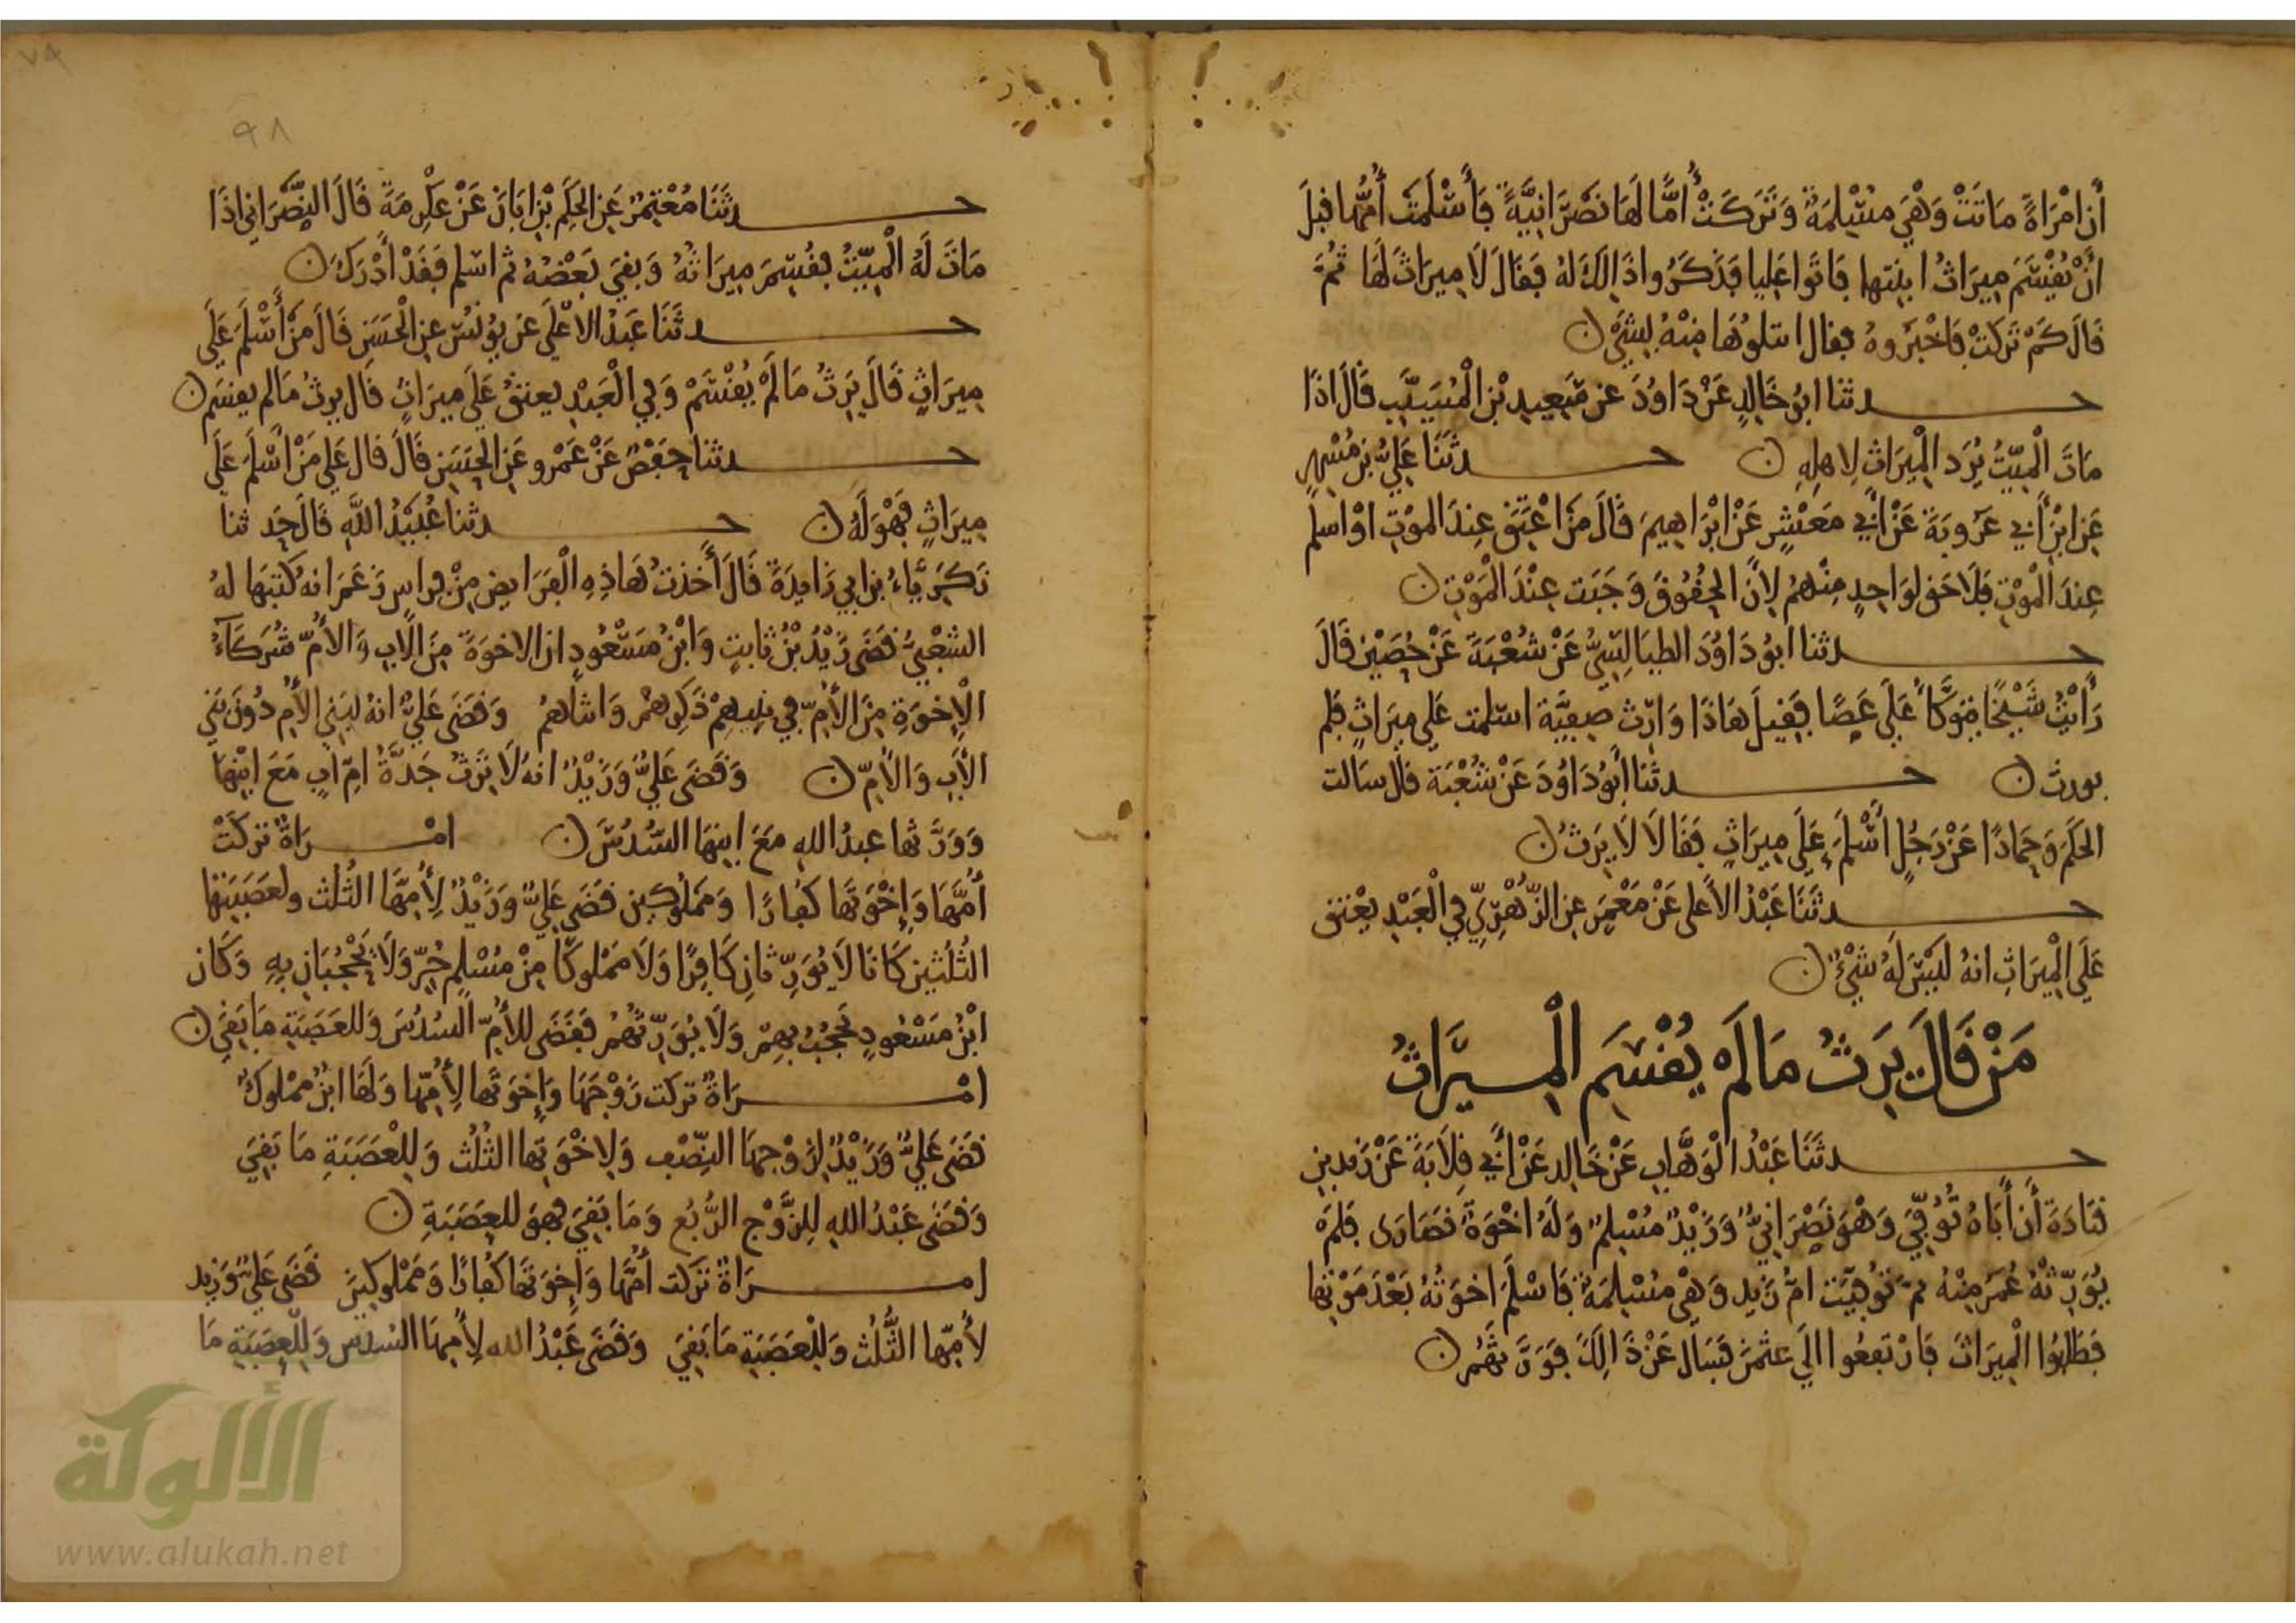 أن امْرَاةً مَاتَتْ وَهْيَ مسْلِمَةٌ وَتَرَكَتْ أُمًّا لَهَا نَصْرَانِيَّةً فَأَسْلَمَتْ أُمُّهَا قبلَ
انْ يُقْسَمَ مِيرَاثُ ابنتها فَاتَوا عَلِيا فذَكَرُوا ذَالِكَ لهُ فَقَالَ لَا مِيرَاثَ لَهَا ثمَّ
قَالَ كَمْ تَرَكَتْ فَاخْبَرُوهُ فقال انيلُوهَا مِنْهُ بِشَيْءٍ ن
حدثنا ابُو خَالِدٍ عَنْ دَاوُدَ عن سَعِيدِ بْنِ الْمُسَيَّبِ قَالَ اذَا
مَاتَ الْمَيّتُ يُرَد الْمِيرَاث لِاهلِهِ ن حدثَنَا عَلِيُّ بْن مُسْهِرٍ
عَنِ ابْنِ أَبِي عَرُوبَةَ عَنْ أَبِي مَعْشَرٍ عَنْ ابْرَاهِيمَ قَالَ مَنْ اعْتِقَ عِندَ الموْتِ اوْ اسلم
عِندَ الْمَوْتِ فَلَا حَق لوَاحِدٍ مِنْهُمْ لِأنَّ الحُقُوقَ وَجَبَت عِنْدَ الْمَوْتِ ن
حدثنا ابُو دَاوُدَ الطيَالِسِيُّ عَنْ شُعْبَةَ عَنْ حُصَيْنٍ قَالَ
رَأَيْتُ شَيْخًا يتوَكَّأُ عَلَى عَصًا فَقِيلَ هَاذَا وَارِث صفِيَّة اسلمَ عَلَى مِيرَاثٍ فلم
يورث ن حدثَنَا أَبُو دَاوُدَ عَنْ شُعْبَة قال سَالت
الحكَمَ وَحَمادًا عَنْ رَجُلٍ أَسْلَمَ عَلَى مِيرَاثٍ فَقَالَا لَا يَرَثُ ن
حدثَنَا عَبْدُ الاعلى عَنْ مَعْمَرٍ عن الزّهْرِيّ فِي الْعَبْدِ يعْتق
عَلَى الْمِيرَاثِ انهُ لَيْسَ لَهُ شَيْءٌ ن
مَنْ قَالَ يَرَثُ مَا لَم يُقْسَمِ الْمِيرَاثُ
حدثَنَا عَبْدُ الْوَهَّابِ عَنْ خَالِد عَنْ أَبِي قِلَابَةَ عَنْ زيدبن
قتَادَةَ أَن أَبَاهُ تُوُفِّيَ وَهْوَ نَصْرَانِيٌّ وَزَيْدٌ مُسْلِمٌ وَلَهُ اخْوَةٌ نَصَارَى فَلَمْ
يُوَرِّثْهُ عُمَرُ مِنْهُ ثمّ تُوُفِّيَت امُّ زَيدٍ وَهْيَ مُسْلِمَةٌ فَاسْلَمَ اخوَتُهُ بَعْدَ مَوْتِهَا
فَطَلبُوا الْمِيرَاثَ فَارْتفعُوا الَى عثمنَ فَسَال عَنْ ذَالِكَ فَوَرَّثَهُمْ ن
حدثَنَا مُعْتَمِرٌ عَنِ الحَكَمِ بْنِ ابَانَ عَنْ عِكْرِمَةَ قَالَ النَّصْرَانِي اذَا
مَاتَ لَهُ الْمَيِّتُ فقُسِمَ مِيرَاثُهُ وَبَقِيَ بَعْضُهُ ثم اسلم فَقَدْ أَدْرَكَ ن
حدثَنَا عَبْدُ الاعْلَى عن يُونُسَ عنِ الْحَسَنِ قَالَ مَنْ أَسْلَمَ عَلَى
مِيرَاثٍ قَالَ يَرِثُ مَا لَمْ يُقْسَمْ وَفِي الْعَبْدِ يعتقُ عَلَى مِيرَاثٍ قَال يرثُ مَا لم يقسَم ن
حدثنا حَفْصٌ عَنْ عَمْرو عَنِ الحَسَنِ قَالَ قال عَلي مَنْ اسْلَمَ عَلَى
مِيرَاثٍ فَهْوَ لَهُ ن حدثنا عُبَيْدُ اللَّهِ قَالَ حَدثنا
زَكَرِيَّاءُ بن ابي زَايِدَةَ قَالَ أَخذتُ هَاذِهِ الْفَرَايِضَ مِنْ فراسٍ زَعَمَ انهُ كَتَبَهَا لهُ
الشعْبِيُّ قَضَى زَيْدُ بْنُ ثَابِتٍ وَابْنُ مَسْعُودٍ ان الاخوَةَ مِنَ الْأَبِ وَالْأُمِّ شُرَكَاءُ
الْإِخوَةِ مِنَ الأُمِّ في بنيهِمْ ذَكَرِهمْ وَانثاهُمْ وَقَضَى عَلِيٌّ انهُ لبَنِي الأُمِّ دُونَ بَنِي
الأَبِ وَالْأُمِّ ن وَقَضَى عَلِيٌّ وَزَيْدٌ انهُ لَا تَرَثُ جَدَّةٌ امّ أبٍ مَعَ ابْنِهَا
وَوَرَّثها عبدُ اللهِ مَعَ ابنِهَا السُدُسَ ن امْرَاةٌ تركَتْ
أُمَّهَا وَإِخْوَتَهَا كفارًا وَمَمْلُوكِين قَضَى عَلِيٌّ وَزَيْدٌ لِأُمِّهَا الثُّلُثَ ولعَصَبَتِهَا
الثُلُثَيْنِ كَانَا لَا يُوَرِّثَانِ كَافِرًا وَلَا مَمْلُوكًا مِنْ مُسْلِمٍ حُرٍّ وَلَا يَحْجُبَانِ بِهِ وَكَان
ابْنُ مَسْعُودٍ يَحْجُبُ بِهِمْ وَلَا يُوَرِّثُهُمْ فقَضَى للأُمِّ السُدُسَ وَللعَصَبَةِ مَا بَقِيَ ن
امْرَاةٌ تركت زَوْجَهَا وَإِخوَتَهَا لِأُمِّهَا وَلَهَا ابْنٌ مَمْلوكٌ
قَضَى عَلِيٌّ وَزَيْدٌ لِزَوْجِهَا النِّصْفَ وَلِاخْوَتِهَا الثُّلُثَ وَلِلْعَصَبَةِ مَا بَقِيَ
وَقَضَى عَبْدُ اللهِ لِلزَّوْجِ الرُّبُعَ وَمَا بَقِيَ فهوَ للعَصَبَةِ ن
امْرَاةٌ تَرَكت أُمَّهَا وَإِخوَتَهَا كفارًا وَمَمْلوكِينَ قَضَى عَلِيٌّ وَزَيد
لأُمِّهَا الثُّلُثَ وَلِلْعَصَبَةِ مَا بَقِيَ وَقَضَى عَبْدُ الله لِأُمِّهَا السُدُسَ وَلِلْعَصَبَةِ مَا
٩٨
الألوكة
www.alukah.net